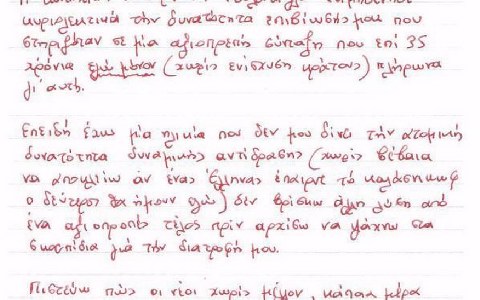 κυριολεκτικά την δυνατότητα επιβίωσής μου που
στηριζόταν σε μία αξιοπρεπή σύνταξη που επί 35
χρόνια εγώ μόνον (χωρίς ενίσχυση κράτους) πλήρωνα
γι' αυτή.
Επειδή έχω μία ηλικία που δεν μου δίνει την ατομική
δυνατότητα δυναμικής αντίδρασης (χωρίς βέβαια
να αποκλείω αν ένας Έλληνας έπαιρνε το καλάσνικωφ
ο δεύτερος θα ήμουν εγώ) δεν βρίσκω άλλη λύση από
ένα αξιοπρεπές τέλος πριν αρχίσω να ψάχνω στα
σκουπίδια για την διατροφή μου.
Πιστεύω πως οι νέοι χωρίς μέλλον, κάποια μέρα